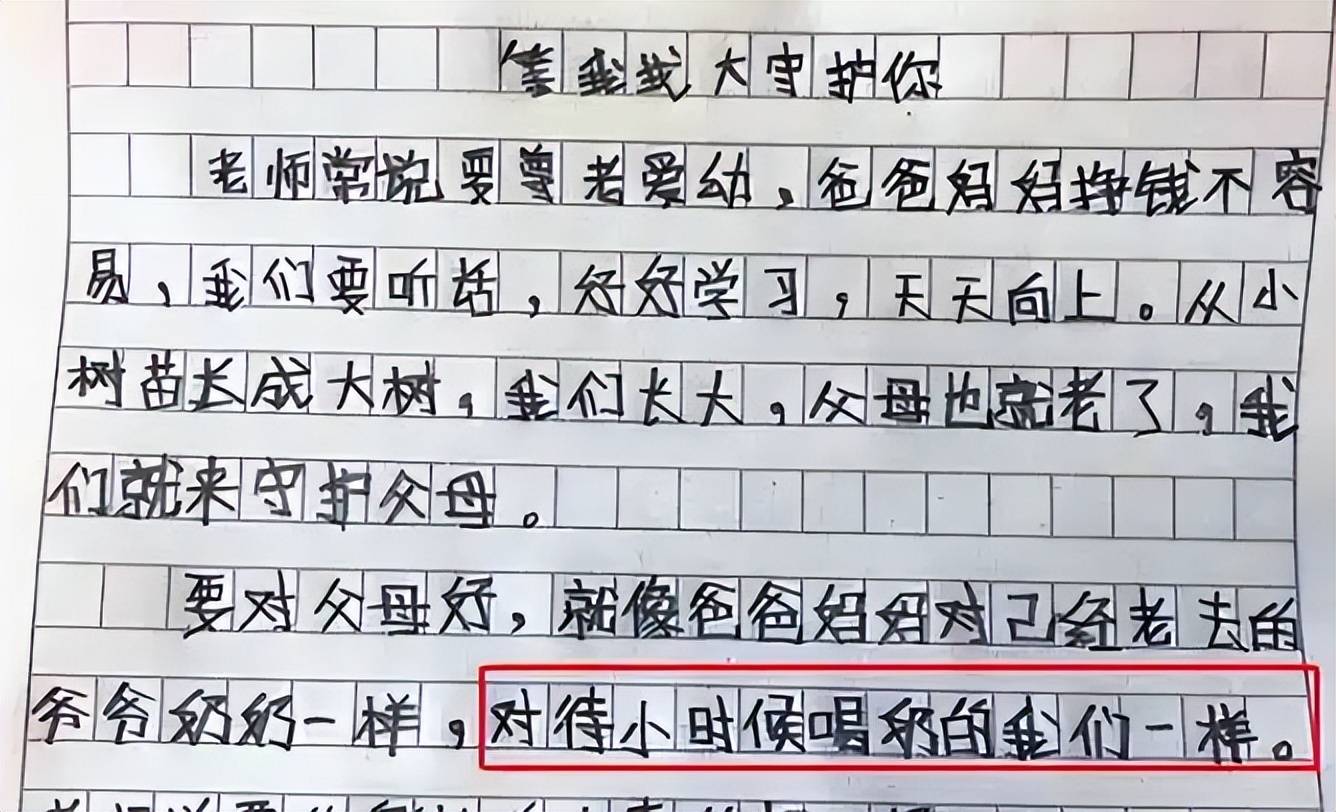 等我我大守护你
老师常说要尊老爱幼，爸爸妈妈挣钱不容
易，我们要听话，好好学习，天天向上。从小
树苗长成大树，我们长大，父母也就老了，我
们就来守护父母。
要对父母好，就像爸爸妈妈对己经老去的
爷爷奶奶一样，对待小时候喝奶的我们一样。